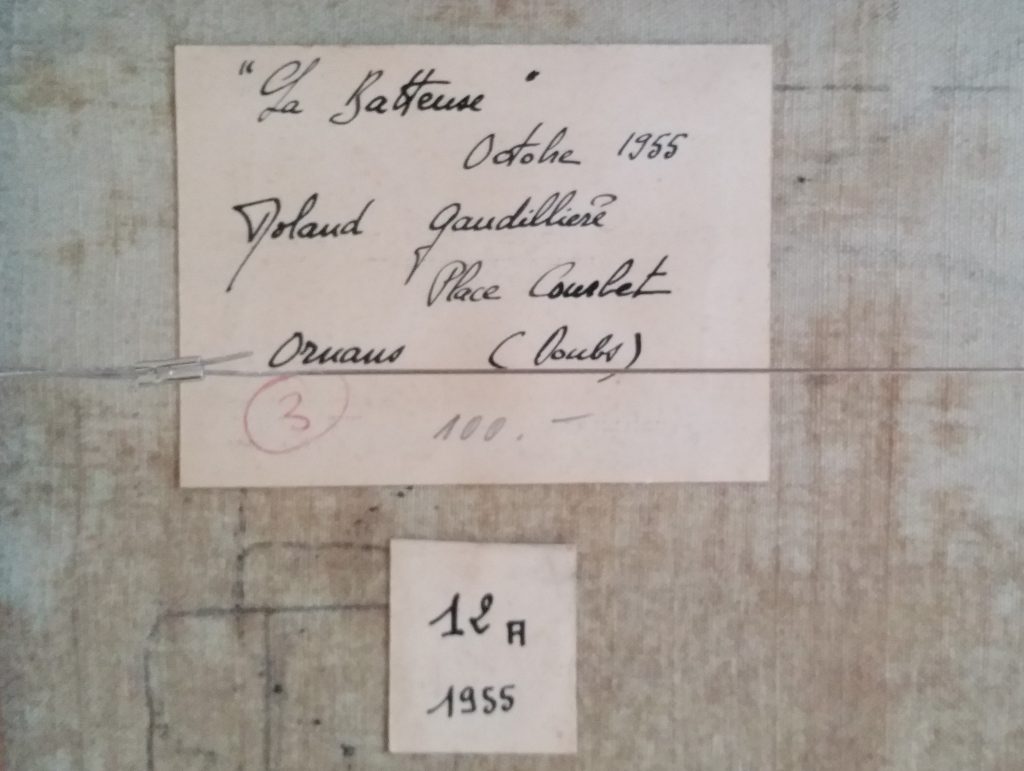 "La Batteuse"
Octobre 1955
Roland Gaudillière
Place Courbet
Ornans (Doubs)
3
100.—
12 A
1955